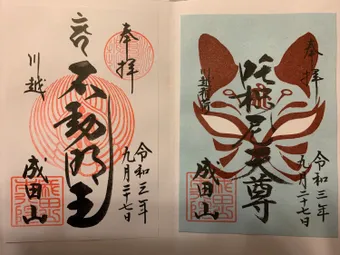 奉拝
令和三年
九月二十七日
不動明王
川越
成田山
奉拝
令和三年
九月二十七日
吒枳尼天尊
成田山